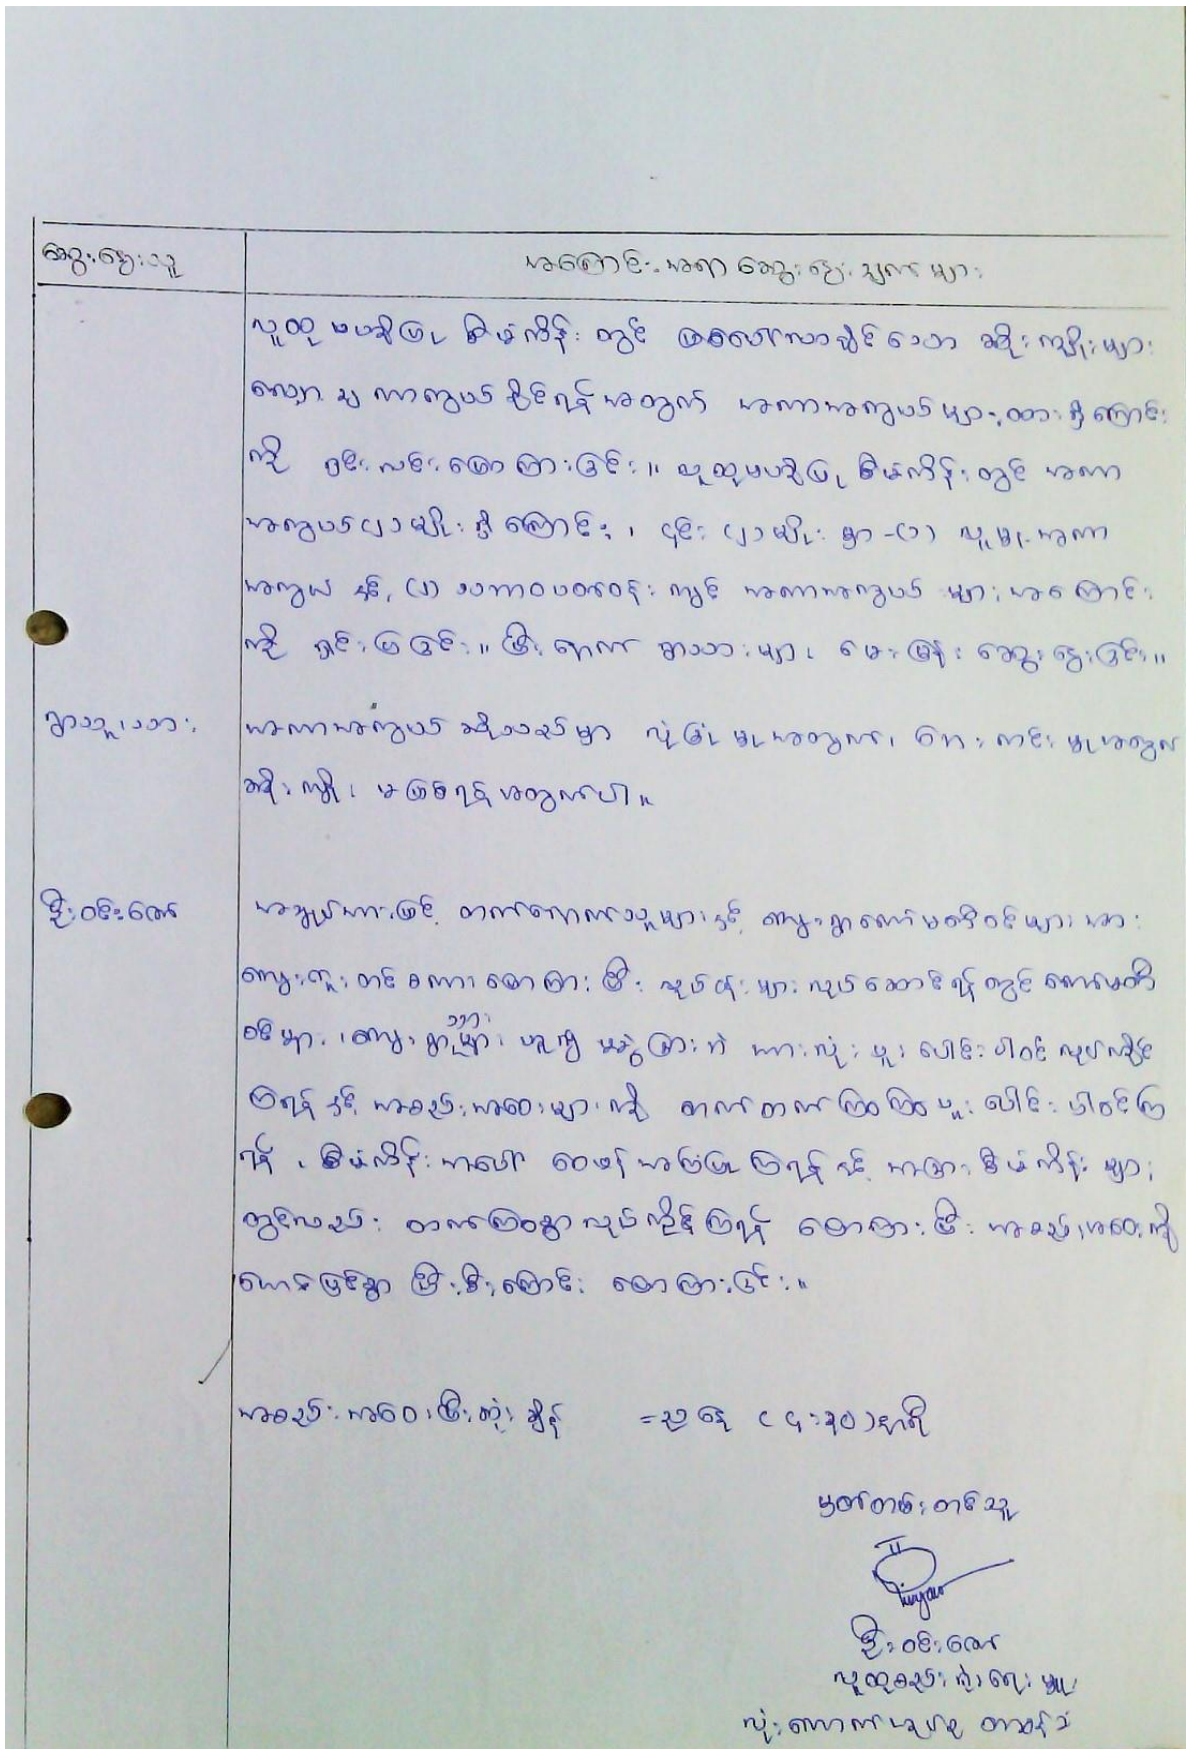 ဆွေးနွေးသူ
အကြောင်းအရာ ဆွေးနွေးချက်များ
လူထုဗဟိုပြု စီမံကိန်းတွင် ဖြစ်ပေါ်လာနိုင်သော ဆိုးကျိုးများ
လျော့ချ ကာကွယ်နိုင်ရန်အတွက် အကာအကွယ်များထားရှိကြောင်း
ကို ရှင်းလင်းပြောကြားခြင်း။ လူထုဗဟိုပြု စီမံကိန်းတွင် အကာ
အကွယ် (၂) မျိုးရှိကြောင်း၊ ၎င်း (၂) မျိုးမှာ-(၁) လူမှုအကာ
အကွယ် နှင့် (၂) သဘာဝပတ်ဝန်းကျင် အကာအကွယ်များ အကြောင်း
ကို ရှင်းပြခြင်း။ ပြီးနောက် ရွာသားများ မေးမြန်း ဆွေးနွေးခြင်း။
ရွာသူ၊သား
အကာအကွယ် ဆိုသည်မှာ လုံခြုံမှုအတွက်၊ ဘေးကင်းမှုအတွက်
ဆိုးကျိုး မဖြစ်ရန်အတွက်ပါ။
ဦးဝင်းဇော်
အနေဖြင့် တက်ရောက်သူများနှင့် ကျေးရွာကော်မတီဝင်များအား
ကျေးဇူးတင်စကားပြောကြားပြီး လုပ်ငန်းများ လုပ်ဆောင်ရန်တွင် ကော်မတီ
ဝင်များ၊ ကျေးရွာသားများ ဟူ၍ မခွဲခြားဘဲ အားလုံး ပူးပေါင်းပါဝင်လုပ်ကိုင်
ကြရန်နှင့် အစည်းအဝေးများကို တက်တက်ကြွကြွ ပူးပေါင်းပါဝင်ကြ
ရန်၊ စီမံကိန်းအပေါ် ဝေဖန်အကြံပြုကြရန်နှင့် အခြားစီမံကိန်းများ
တွင်လည်း တက်ကြွစွာ လုပ်ကိုင်ကြရန် ပြောကြားပြီး အစည်းအဝေးကို
အောင်မြင်စွာ ပြီးစီးကြောင်း ပြောကြားခြင်း။
အစည်းအဝေးပြီးဆုံးချိန် = ညနေ (၄:၃၀) နာရီ
မှတ်တမ်းတင်သူ
ဦးဝင်းဇော်
လူထုစည်းရုံးရေးမှူး